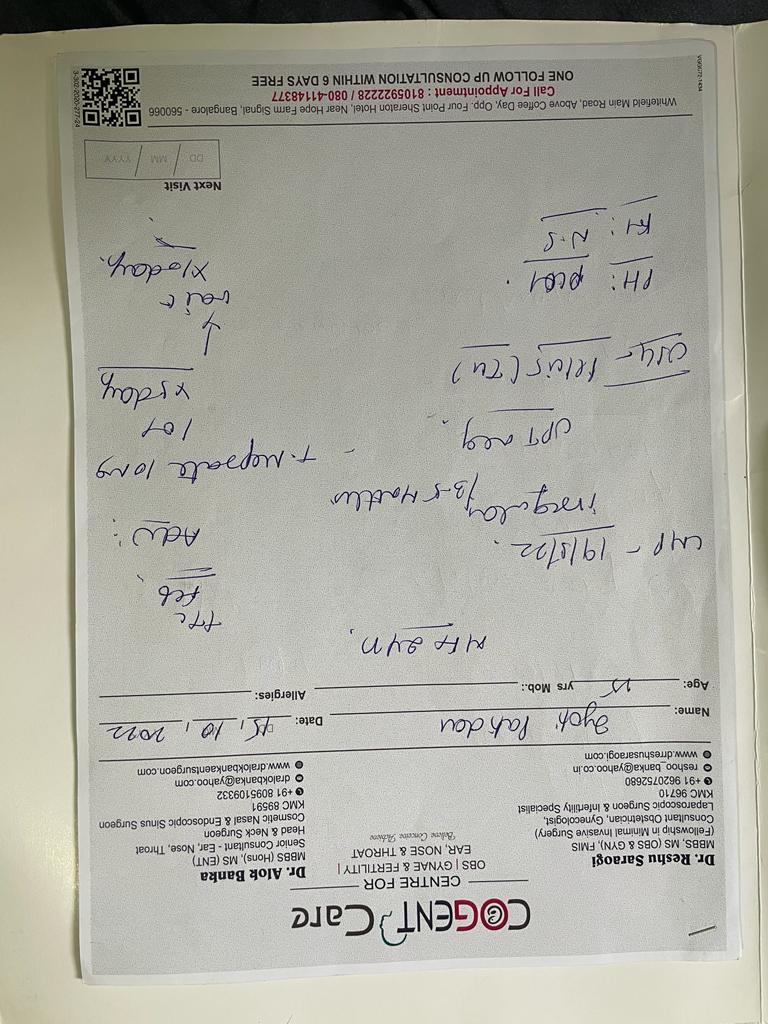 COGENT Care
CENTRE FOR
OBS | GYNAE & FERTILITY |
EAR, NOSE & THROAT
Believe Conceive Achieve
Dr. Reshu Saraogi
MBBS, MS (OBS & GYN), FMIS
(Fellowship in Minimal Invasive Surgery)
Consultant Obstetrician, Gynecologist,
Laparoscopic Surgeon & Infertility Specialist
KMC 96710
+91 9620752680
reshoo_banka@yahoo.co.in
www.drreshusaraogi.com
Dr. Alok Banka
MBBS (Hons), MS (ENT)
Senior Consultant - Ear, Nose, Throat
Head & Neck Surgeon
Cosmetic Nasal & Endoscopic Sinus Surgeon
KMC 89591
+91 8095109332
dralokbanka@yahoo.com
www.dralokbankaentsurgeon.com
Name: Jyoti Patidar Date: 15, 10, 2022
Age: 25 yrs Mob.: Allergies:
TTC
Feb
LMP - 19/5/22.
Adv:
irregular /3-5 Months
T. Meprate 10 mg
UPT neg.
x 5 day
USG - Pelvis
wait
x 10 day.
PH: PCOS.
FH: N.S
Next Visit
DD / MM / YYYY
Whitefield Main Road, Above Coffee Day, Opp. Four Point Sheraton Hotel, Near Hope Farm Signal, Bangalore - 560066
Call For Appointment : 8105922228 / 080-41148377
ONE FOLLOW UP CONSULTATION WITHIN 6 DAYS FREE